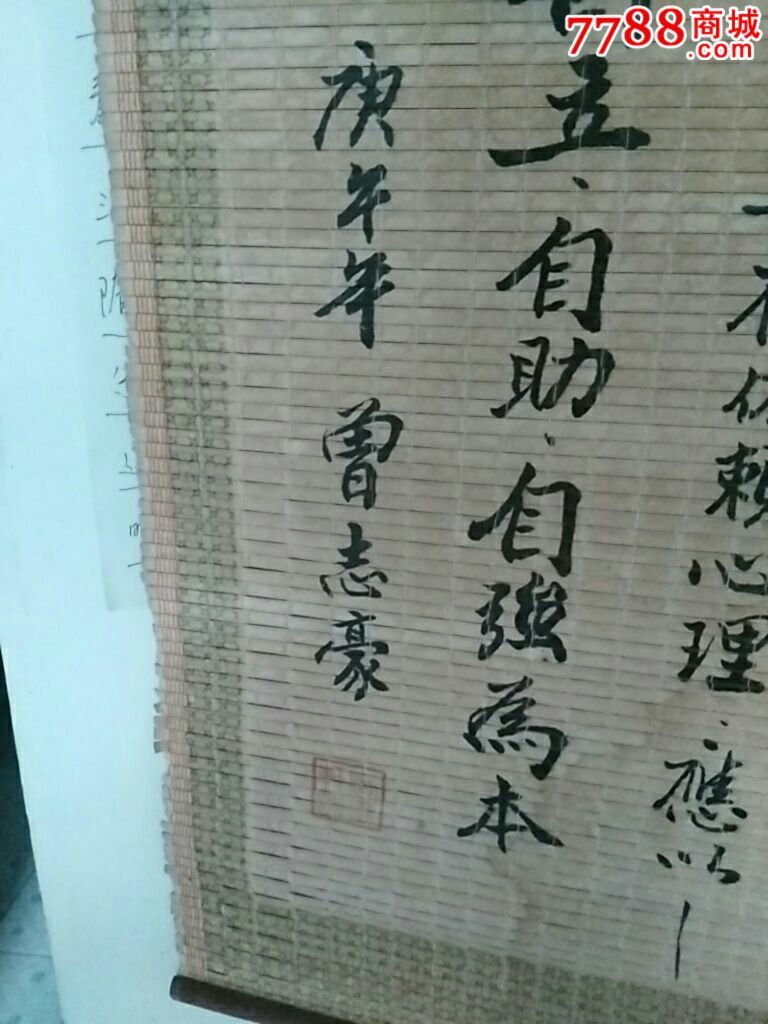 7788商城
.com
不依賴心理、應以
立、自助、自強為本
庚午年 曾志豪